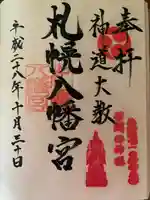 奉拝
神道大教
札幌八幡宮
平成二八年十月三十日